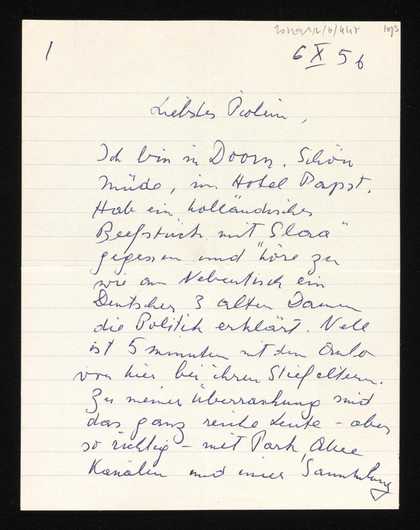 1
6 X 56
Liebstes
Ich bin in Doorn. Schön
müde, im Hotel Papst.
Hab ein holländisches
Beefstück mit "Slaa"
gegessen und höre zu
wie am Nebentisch ein
Deutscher 3 alten Damen
die Politik erklärt. Nell
ist 5 minuten mit dem Auto
von hier bei ihren Stiefeltern.
Zu meiner Überraschung sind
das ganz reiche Leute - aber
so richtig - mit Park, Allee
Kanälen und einer Sammlung